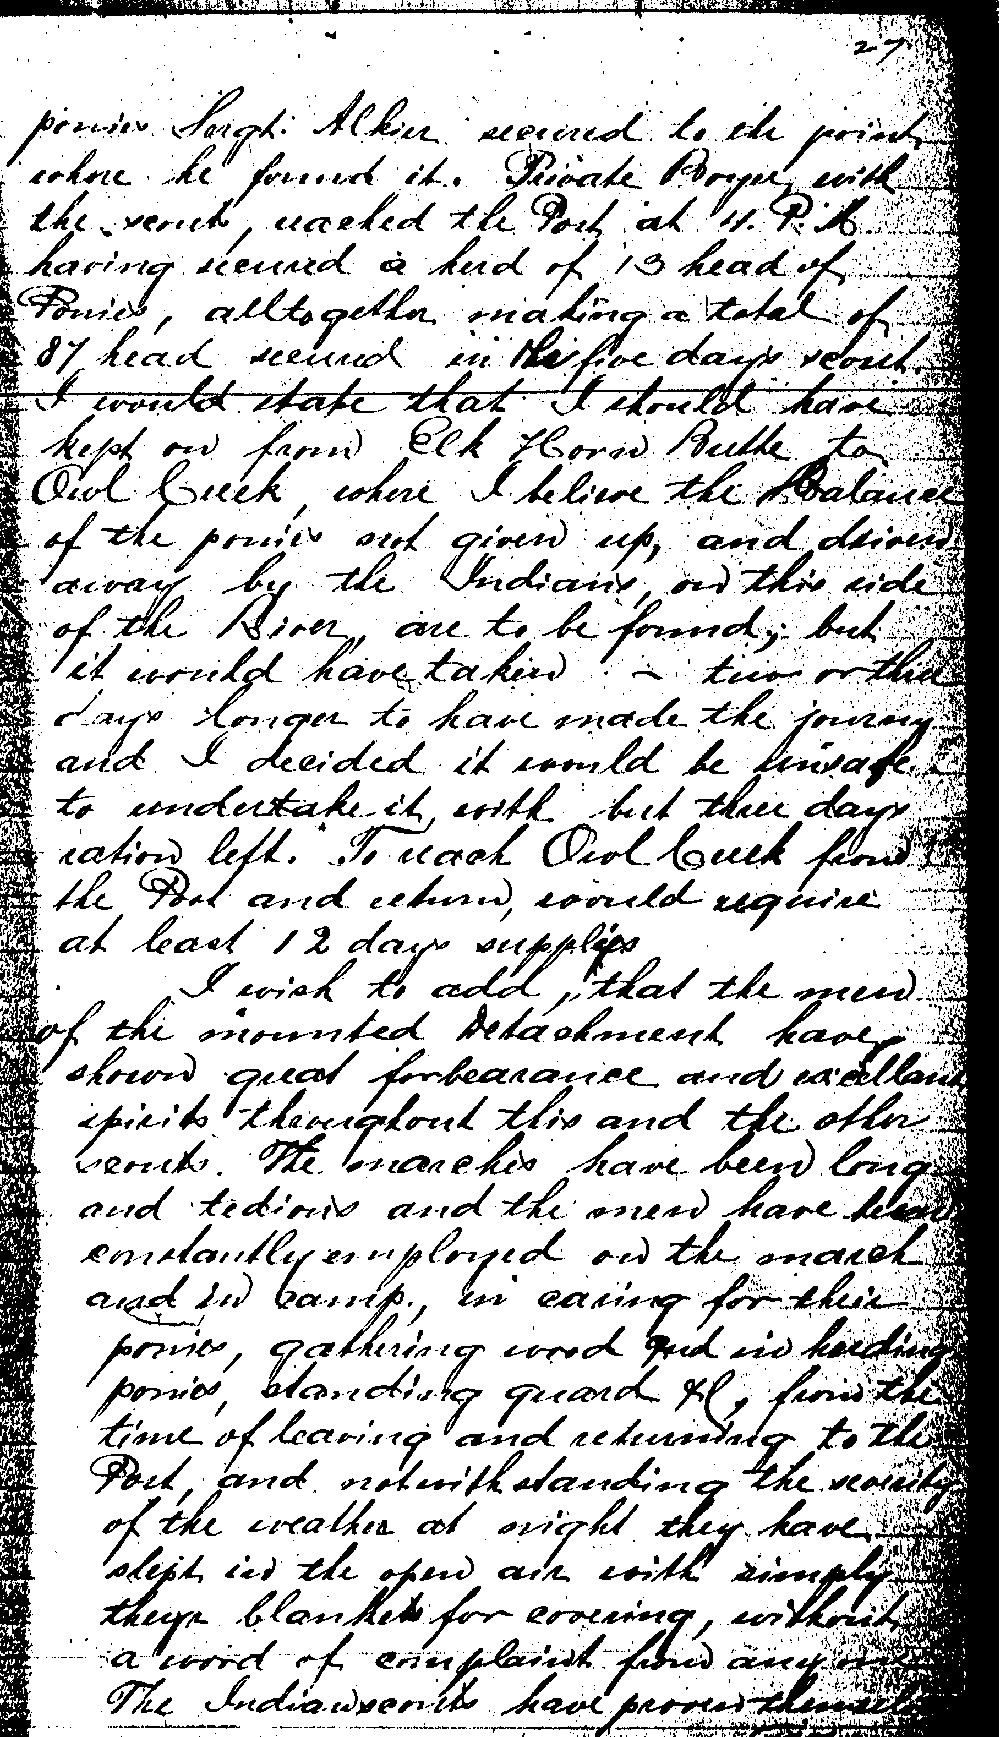 27
ponies Sergt. Alkier secured to the point
where he found it. Private Boyer, with
the scouts, reached the Post at 4. P.M.
having secured a herd of 13 head of
Ponies, alltogether making a total of
87 head secured in this five days scout.
I would state that I should have
kept on from Elk Horn Butte to
Owl Creek, where I believe the Balance
of the ponies not given up, and driven
away by the Indians, on this side
of the River, are to be found; but
it would have taken - two or three
days longer to have made the journey
and I decided it would be unsafe
to undertake it, with but three days
ration left. To reach Owl Creek from
the Post and return, would require
at least 12 days supplies
I wish to add, that the men
of the mounted Detachment have
shown great forbearance and excellant
spirits throughout this and the other
scouts. The marches have been long
and tedious and the men have been
constantly employed on the march
and in camp, in caring for their
ponies, gathering wood and in herding
ponies, standing guard &c, from the
time of leaving and returning to the
Post, and notwithstanding the severity
of the weather at night they have
slept in the open air with simply
theyr blankets for covering, without
a word of complaint from any one
The Indian scouts have proven themselves